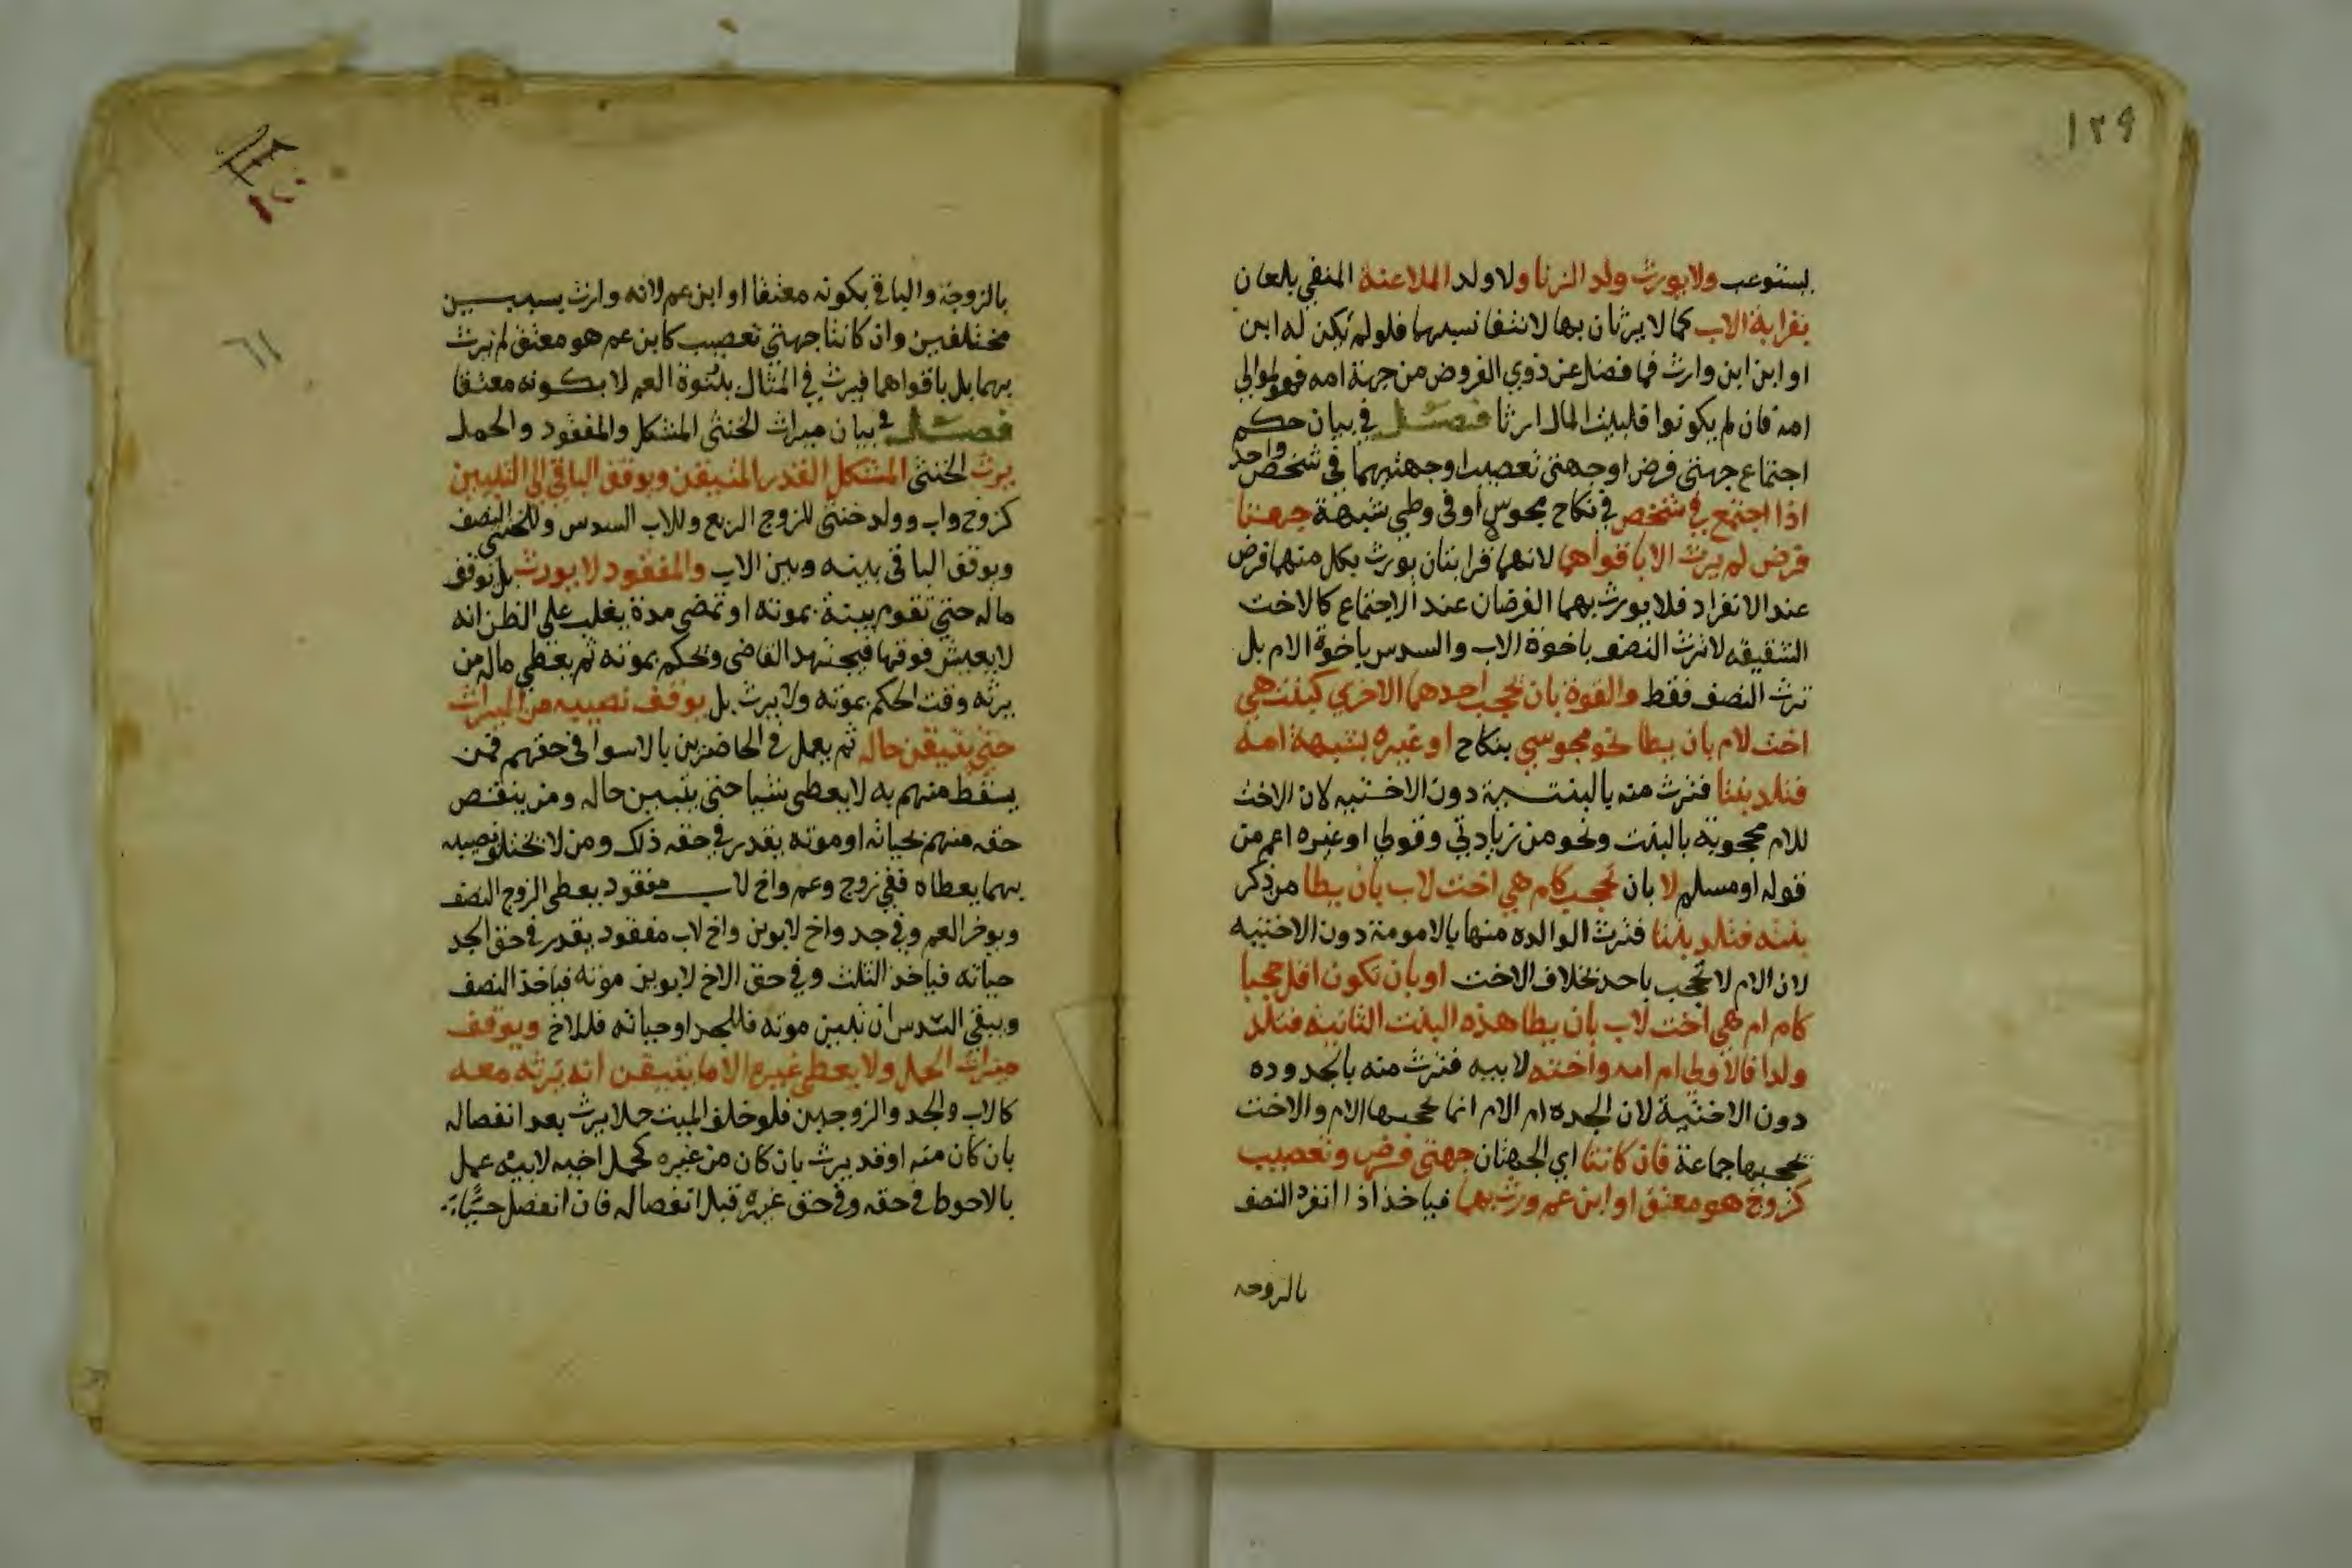 ١٢٩
يستوعب ولا يورث ولد الزنا ولا ولد الملاعنة المنفي بلعان
بقرابة الاب كما لا يرثان بها لانتفا نسبهما فلو لم يكن له ابن
او ابن ابن وارث فما فضل عن ذوي الفروض من جهة امه فهو لموالي
امه فان لم يكونوا فلبيت المال ارثا فصل في بيان حكم
اجتماع جهتي فرض او جهتي تعصيب او جهتيهما في شخص واحد
اذا اجتمع في شخص في نكاح مجوس او في وطي شبهة جهتا
فرض لم يرث الا باقواهما لانهما قرابتان يورث بكل منهما فرض
عند الانفراد فلا يورث بهما الفرضان عند الاجتماع كالاخت
الشقيقه لا ترث النصف باخوة الاب والسدس باخوة الام بل
ترث النصف فقط والقوة بان تحجب احدهما الاخري كبنت هي
اخت لام بان يطا نحو مجوسي بنكاح او غيره بشبهة امه
فتلد بنتا فترث منه بالبنتية دون الاختيه لان الاخت
للام محجوبة بالبنت ونحو من زيادتي وقولي او غيره اعم من
قوله او مسلم لا بان تحجب كام هي اخت لاب بان يطا من ذكر
بنته فتلد بنتا فترث الوالده منها بالامومة دون الاختيه
لان الام لا تحجب باحد بخلاف الاخت او بان تكون اقل حجبا
كام ام هي اخت لاب بان يطا هذه البنت الثانية فتلد
ولدا فالاولي ام امه واخته لابيه فترث منه بالجدوده
دون الاختية لان الجده ام الام انما تحجبها الام والاخت
تحجبها جماعة فان كانتا اي الجهتان جهتي فرض وتعصيب
كزوج هو معتق او ابن عم ورث بهما فياخذ اذا انفرد النصف
بالزوجه
٦١
بالزوجة والباقي بكونه معتقا او ابن عم لانه وارث بسببين
مختلفين وان كانتا جهتي تعصيب كابن عم هو معتق لم يرث
بهما بل باقواهما فيرث في المثال ببنوة العم لا بكونه معتقا
فصل في بيان ميراث الخنثى المشكل والمفقود والحمل
يرث الخنثى المشكل القدر المتيقن ويوقف الباقي الى التبيين
كزوج واب وولد خنثى للزوج الربع وللاب السدس وللخنثى النصف
ويوقف الباقي بينه وبين الاب والمفقود لا يورث بل يوقف
ماله حتى تقوم بينة بموته او تمضى مدة يغلب على الظن انه
لا يعيش فوقها فيجتهد القاضى ويحكم بموته ثم يعطي ماله من
يرثه وقت الحكم بموته ولا يرث بل يوقف نصيبه من الميراث
حتى يتيقن حاله ثم يعمل في الحاضرين بالاسوا في حقهم فمن
يسقط منهم به لا يعطى شيا حتى يتبين حاله ومن ينقص
حقه منهم بحياته او موته يقدر في حقه ذلك ومن لا يختلف نصيبه
بهما يعطاه ففي زوج وعم واخ لاب مفقود يعطى الزوج النصف
ويوخر العم وفي جد واخ لابوين واخ لاب مفقود يقدر في حق الجد
حياته فياخذ الثلث وفي حق الاخ لابوين موته فياخذ النصف
ويبقي السدس ان تبين موته فللجد او حياته فللاخ ويوقف
ميراث الحمل ولا يعطى غيره الا ما يتيقن انه يرثه معه
كالاب والجد والزوجين فلو خلف الميت حملا يرث بعد انفصاله
بان كان منه او قد يرث بان كان من غيره كحمل اخيه لابيه عمل
بالاحوط في حقه وفي حق غيره قبل انفصاله فان انفصل حيا